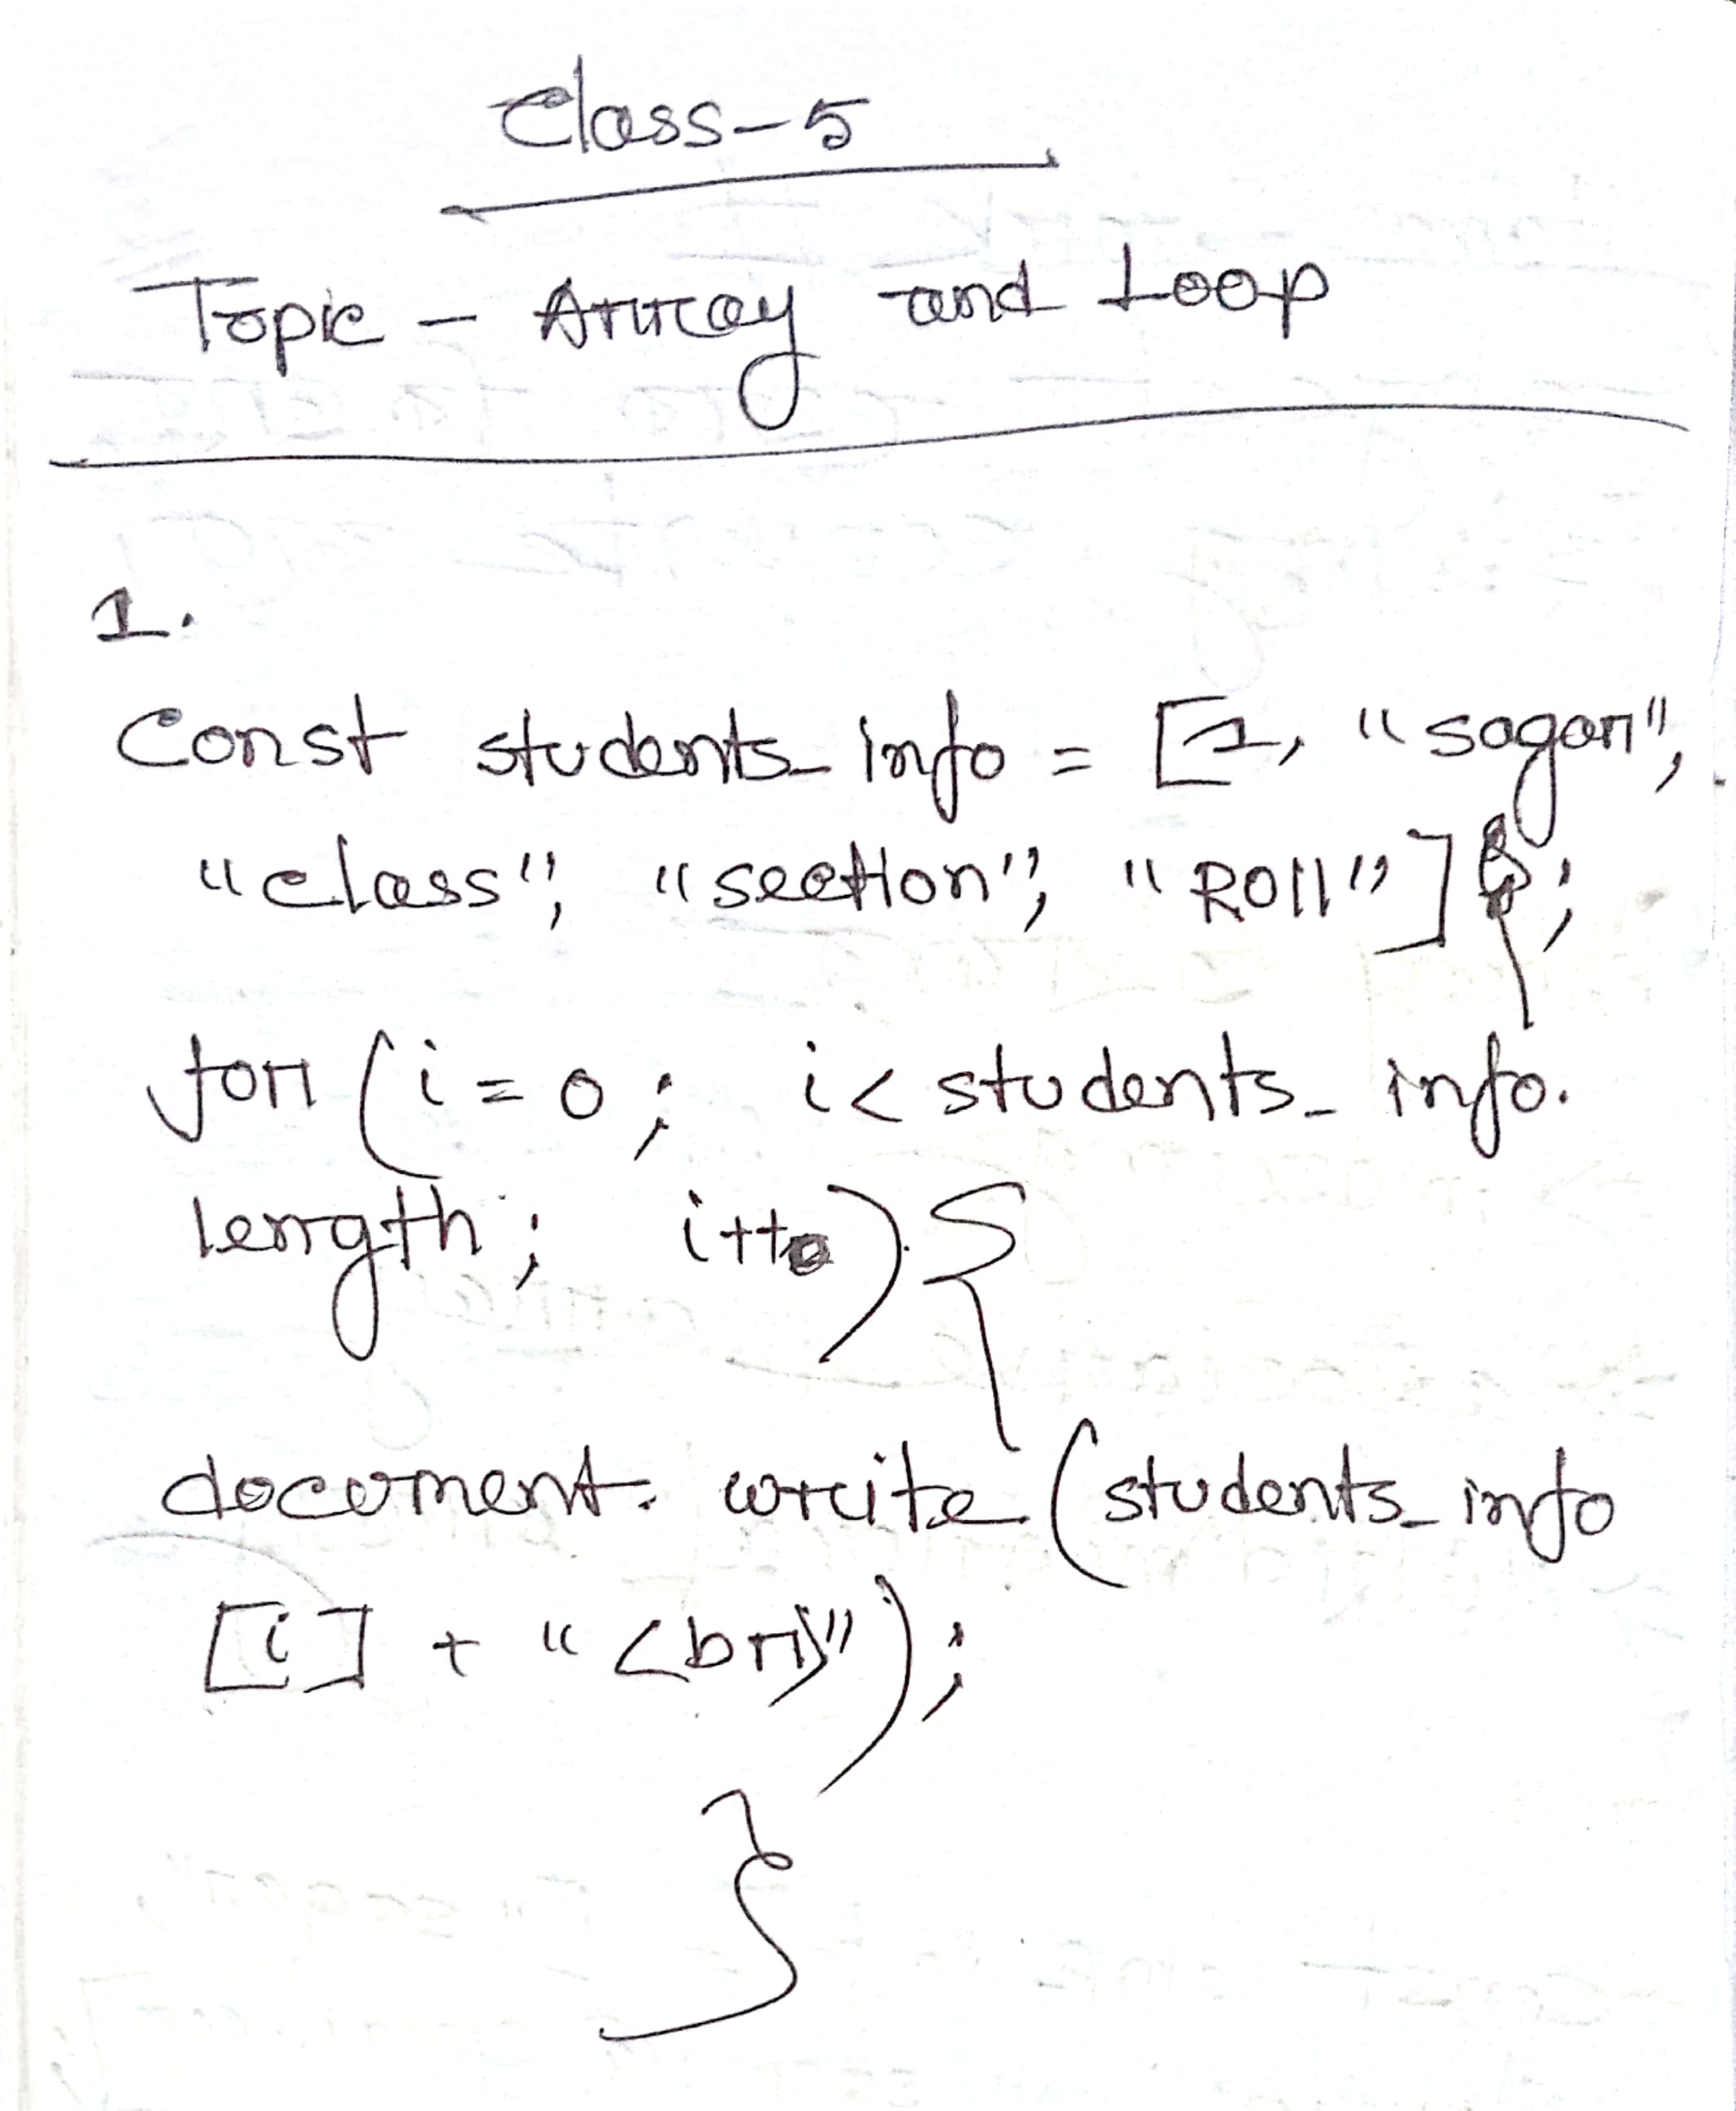 Class-5
Topic - Array and Loop
1.
Const students_info = [1, "sagar",
"class", "section", "Roll"];
for (i = 0; i < students_info.
length; i++) {
document. write (students_info
[i] + "<br>");
}